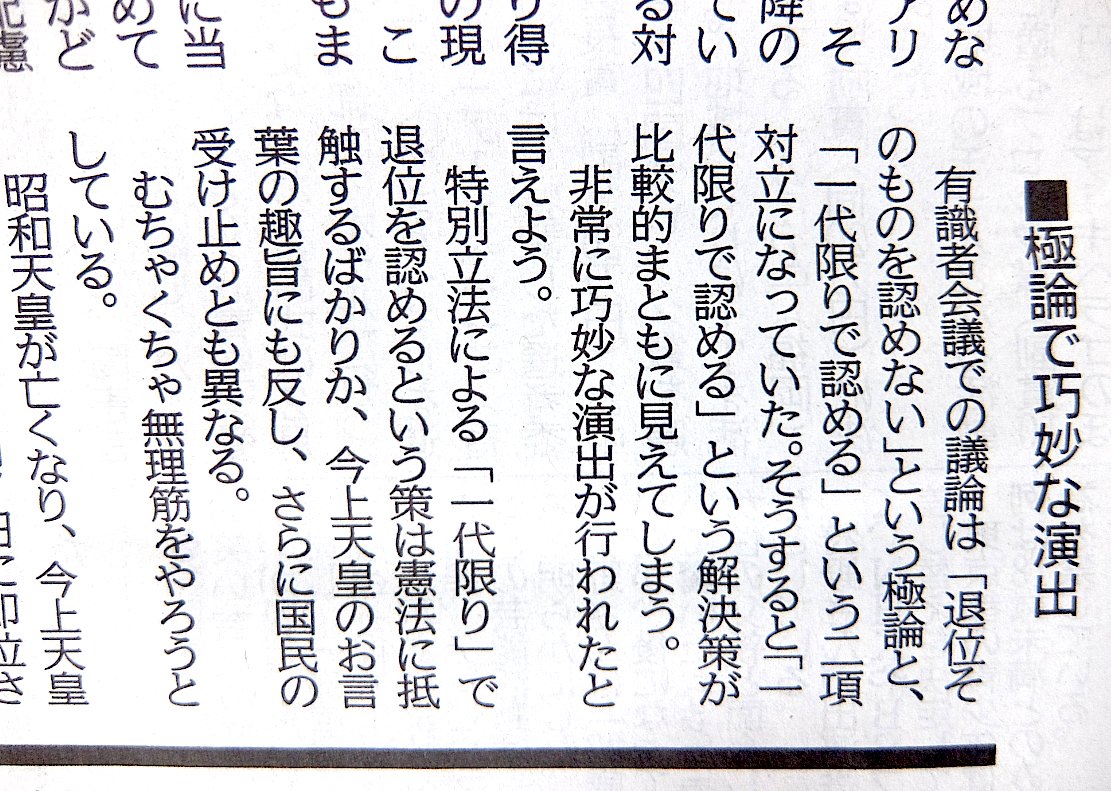 めな
アリ
そ
降の
てい
る対
り得
の現
こ
もま
に当
めて
かど
配慮
■極論で巧妙な演出
有識者会議での議論は「退位そ
のものを認めない」という極論と、
「一代限りで認める」という二項
対立になっていた。そうすると「一
代限りで認める」という解決策が
比較的まともに見えてしまう。
非常に巧妙な演出が行われたと
言えよう。
特別立法による「一代限り」で
退位を認めるという策は憲法に抵
触するばかりか、今上天皇のお言
葉の趣旨にも反し、さらに国民の
受け止めとも異なる。
むちゃくちゃ無理筋をやろうと
している。
昭和天皇が亡くなり、今上天皇
日に即位さ